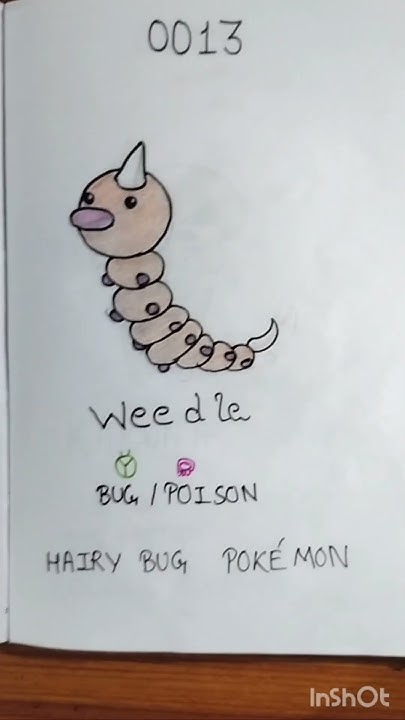 0013
Weedle
BUG / POISON
HAIRY BUG POKÉMON
InShOt